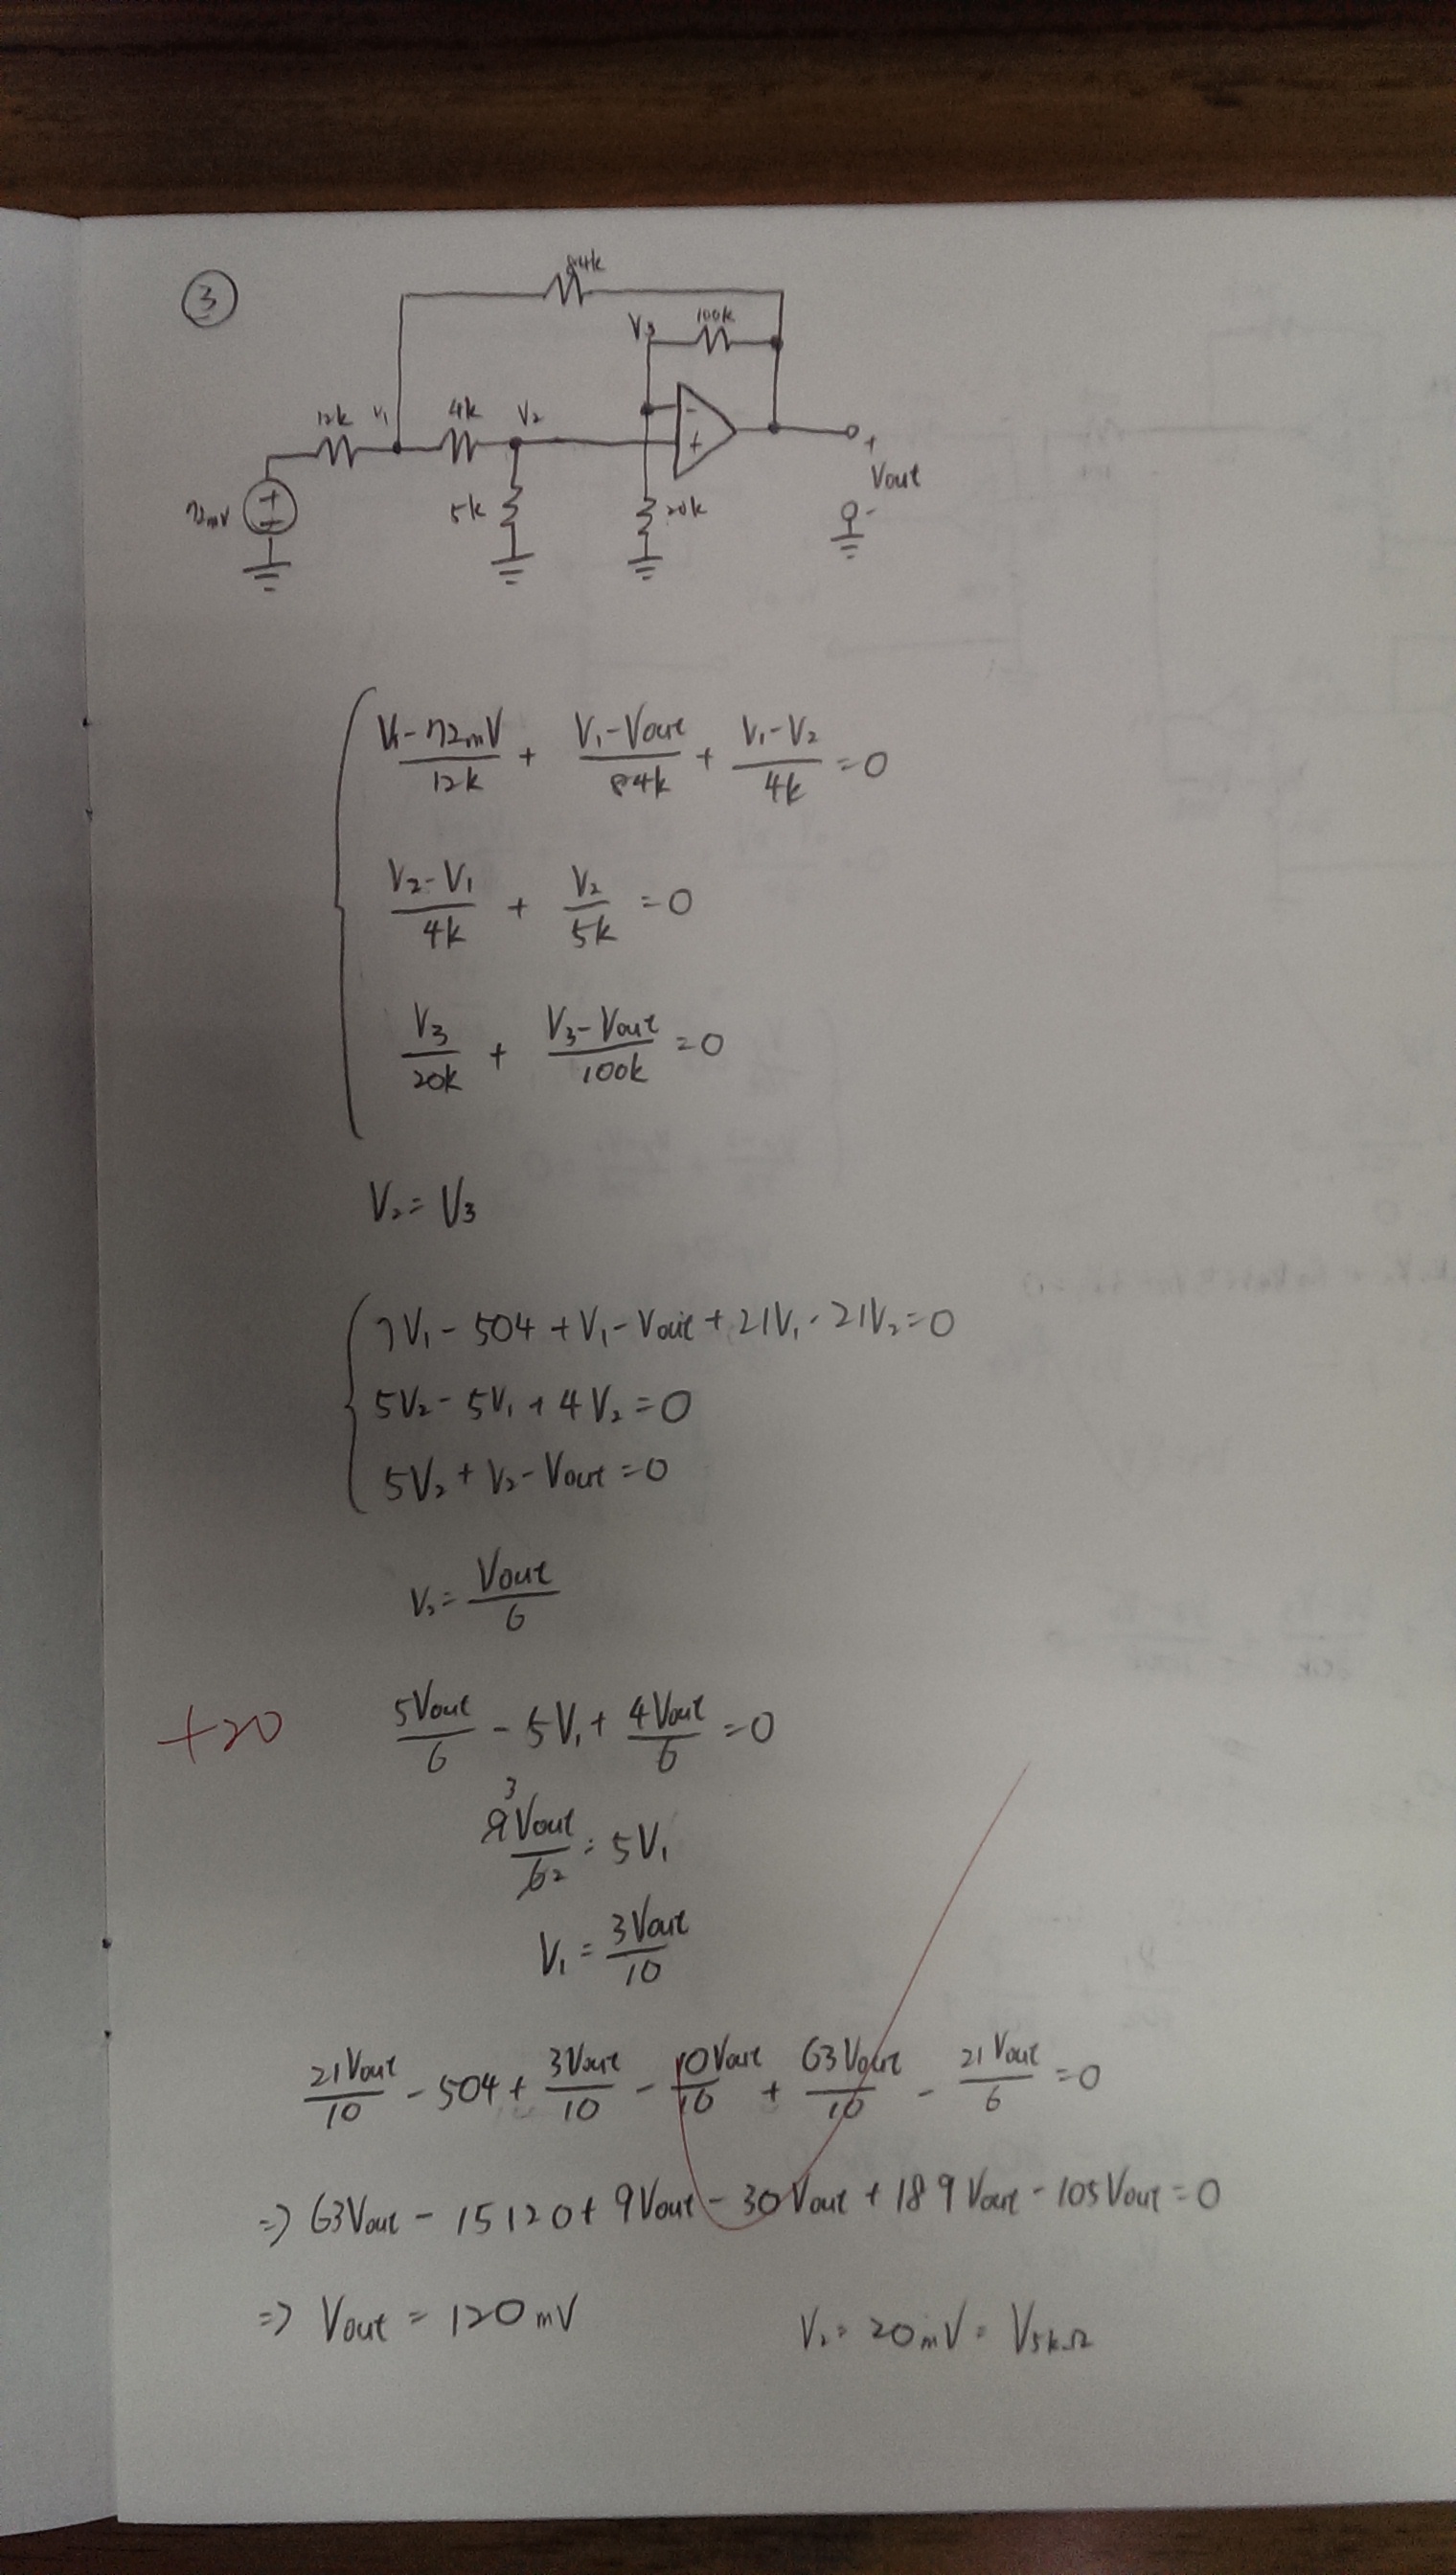 ③
84k
V3 100k
12k V1 4k V2
- + + Vout
72mV + - 5k 20k -
(V1-72mV)/12k + (V1-Vout)/84k + (V1-V2)/4k =0
(V2-V1)/4k + V2/5k =0
V3/20k + (V3-Vout)/100k =0
V2=V3
7V1-504+V1-Vout+21V1-21V2=0
5V2-5V1+4V2=0
5V2+V2-Vout=0
V2=Vout/6
+20 5Vout/6 - 5V1+ 4Vout/6 =0
3
9Vout/62 = 5V1
V1 = 3Vout/10
21Vout/10 - 504+ 3Vout/10 - 10Vout/10 + 63Vout/10 - 21Vout/6 =0
=> 63Vout - 15120+ 9Vout - 30Vout + 189Vout - 105Vout = 0
=> Vout = 120mV V2= 20mV= V5kΩ